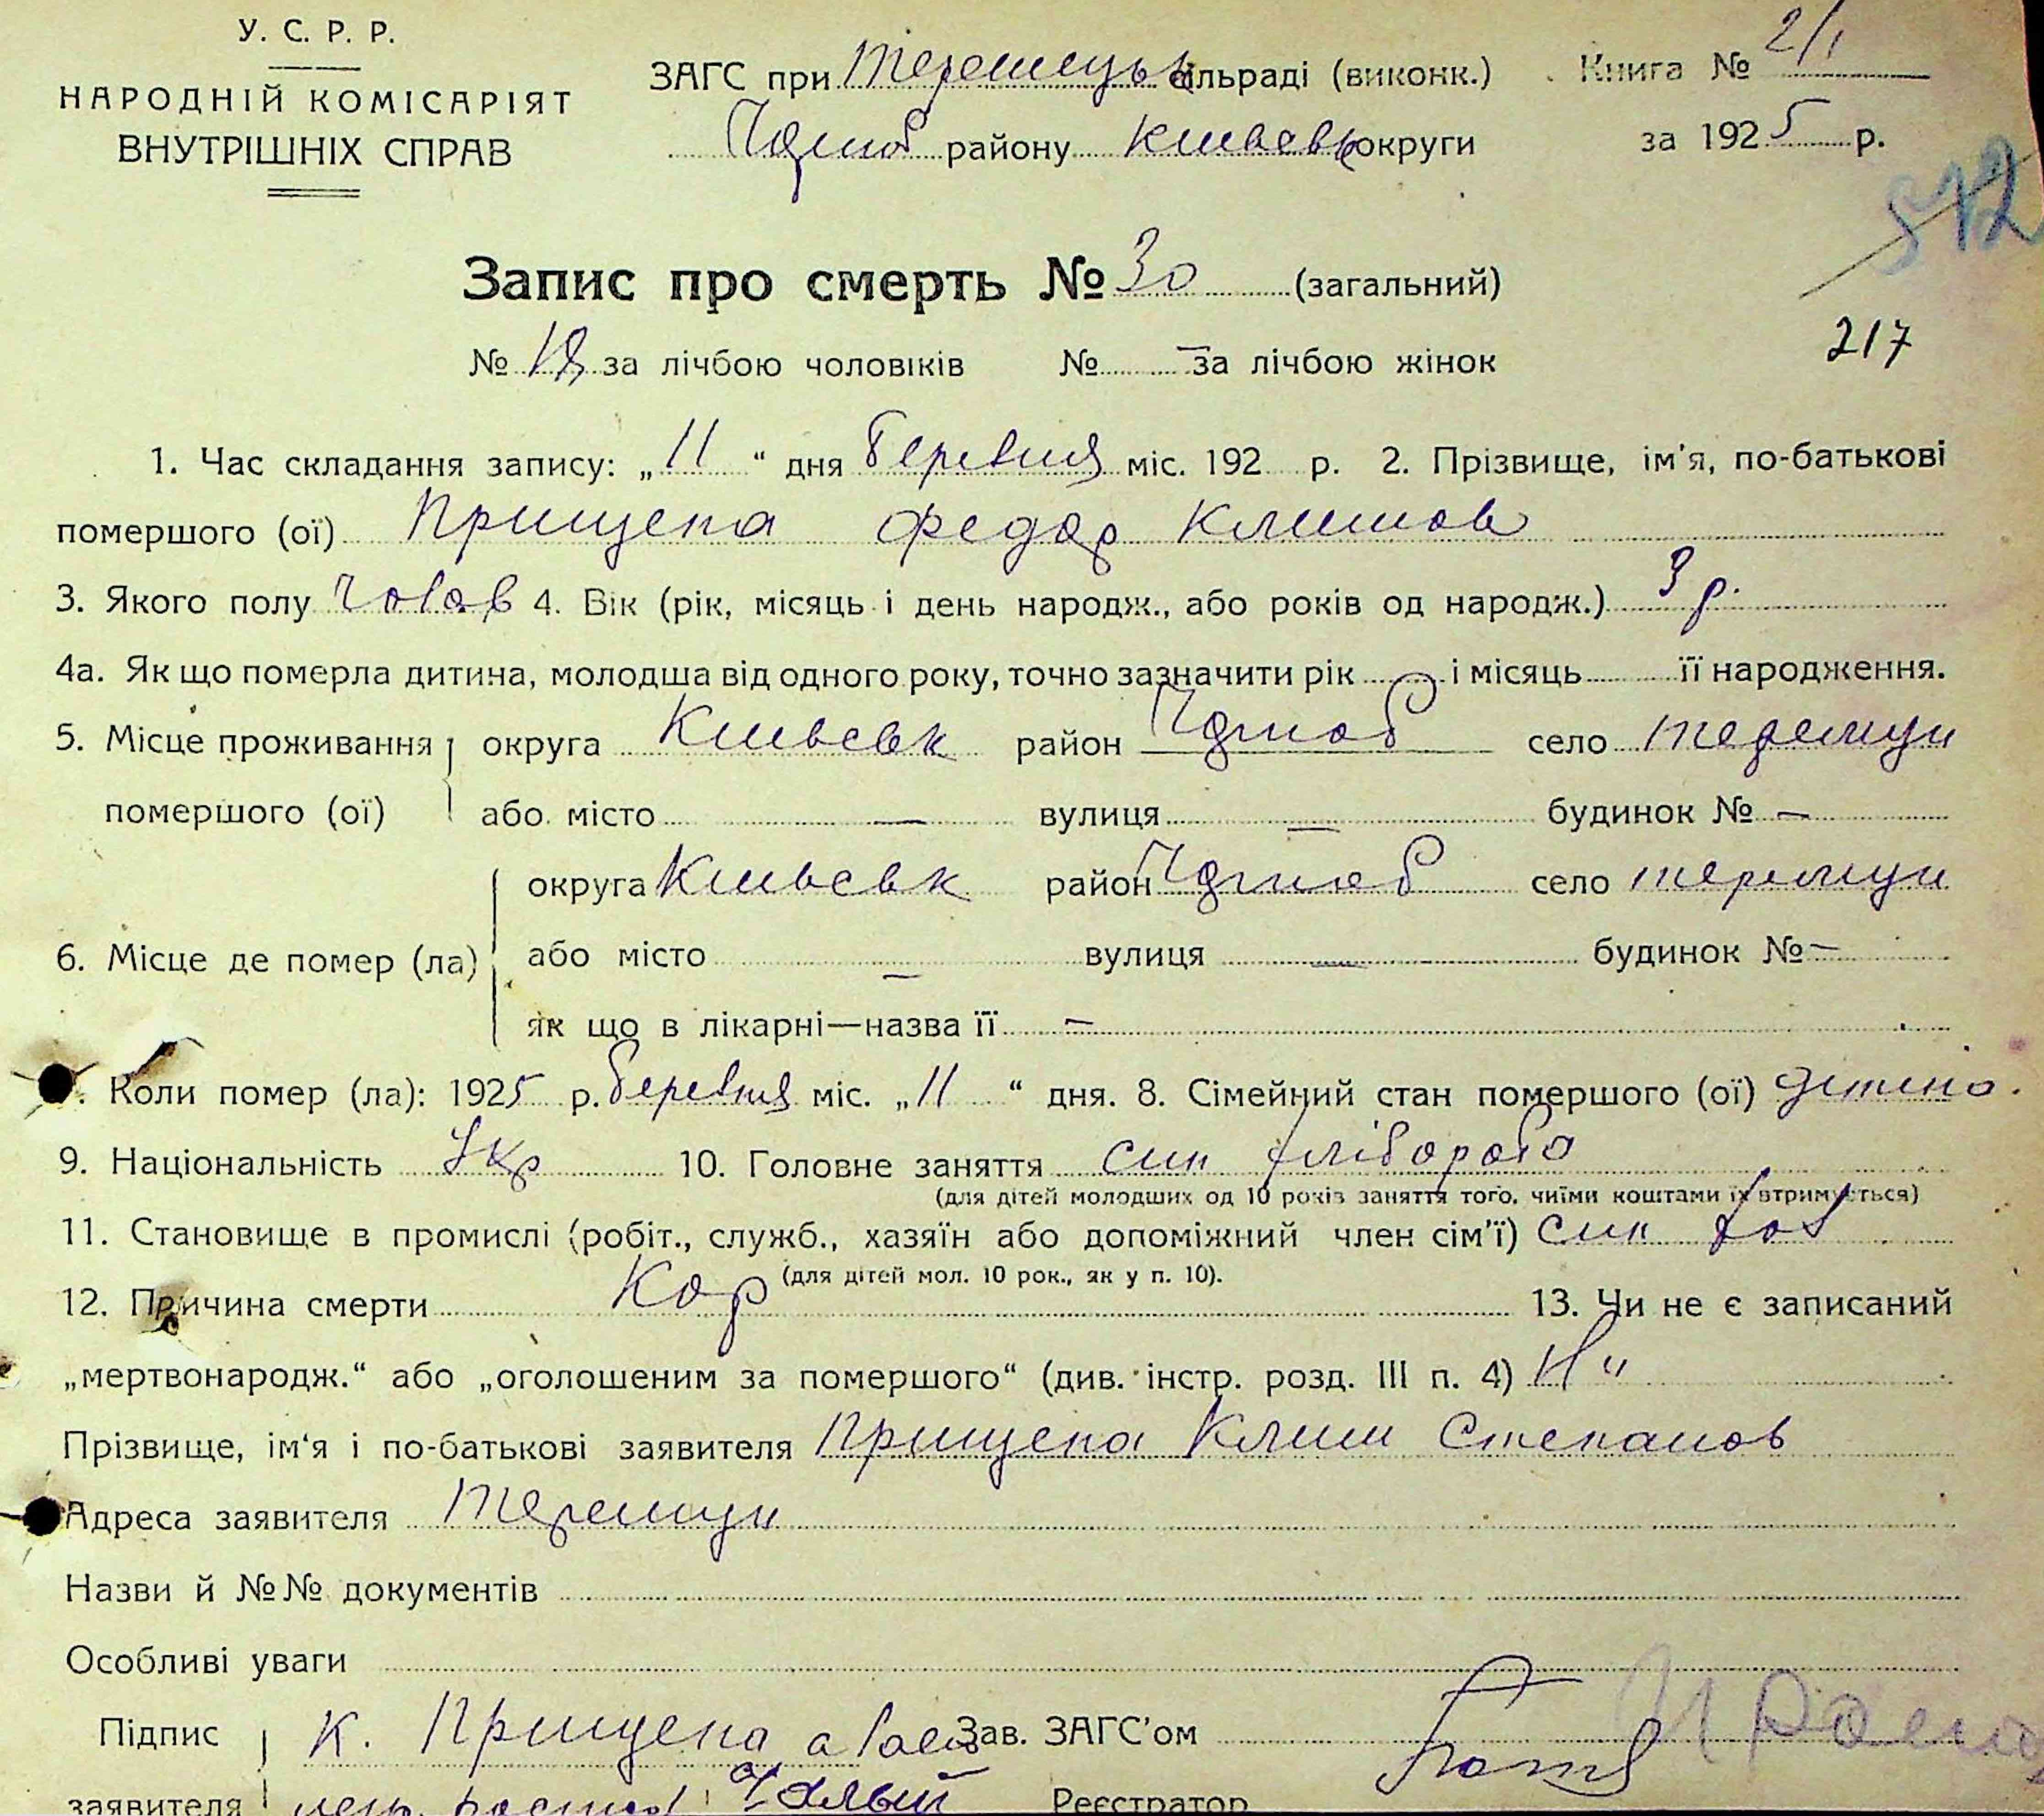 У. С. Р. Р.
НАРОДНІЙ КОМІСАРІЯТ
ВНУТРІШНІХ СПРАВ
ЗАГС при сільраді (виконк.)
району Киевськ округи
Книга № 2/1
за 1925 р.
512
Запис про смерть № 30 (загальний)
№ за лічбою чоловіків № — за лічбою жінок
217
1. Час складання запису: „ 11 “ дня Березня міс. 192 р. 2. Прізвище, ім'я, по-батькові
помершого (ої) Прищепа Федор Климов
3. Якого полу Чолов 4. Вік (рік, місяць і день народж., або років од народж.) 3 р.
4а. Як що померла дитина, молодша від одного року, точно зазначити рік і місяць її народження.
5. Місце проживання округа Киевськ район село Теремци
помершого (ої) або місто — вулиця — будинок № —
округа Киевськ район село Теремци
6. Місце де помер (ла) або місто — вулиця — будинок № —
як що в лікарні—назва її —
Коли помер (ла): 1925 р. Березня міс. „ 11 “ дня. 8. Сімейний стан помершого (ої) дитина.
9. Національність Укр 10. Головне заняття син хлібороба
(для дітей молодших од 10 років заняття того, чиїми коштами їх втримується)
11. Становище в промислі (робіт., служб., хазяїн або допоміжний член сім'ї) син
(для дітей мол. 10 рок., як у п. 10).
12. Причина смерти Кор 13. Чи не є записаний
„мертвонародж.“ або „оголошеним за помершого“ (див. інстр. розд. III п. 4) Ни
Прізвище, ім'я і по-батькові заявителя Прищепа Клим Степанов
Адреса заявителя Теремци
Назви й №№ документів
Особливі уваги
Підпис К. Прищепа а Зав. ЗАГС'ом
заявителя Реєстратор